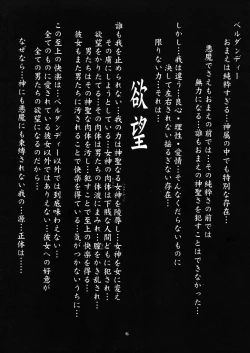 ベルダンディー…
おまえは純粋すぎる…神属の中でも特別な存在…
悪魔でさえもおまえの前では…その純粋さの前では
無力になる…誰もおまえの神聖さを犯すことはできなかった…
しかし…我は違う…良心・理性・愛情…そんなくだらないもの
に流されない揺るぎない存在…
限りない力…それが
欲望
誰も我を止められない…我の力は神聖なる女神を陵辱し…女神を女に変え
その虜にしようとしている…女神の肉体は下賤な人間どもに犯され…
欲望をかりたてる…その肉体は男たちの体液にまみれ…膣をかき乱され…
男たちはその神聖な肉体を汚し…己の欲望を満たす…
彼女もまた…男たちに汚されることで快楽を得ている…気がつかないうちに…
この至上の快楽は…ベルダンディー以外では到底味わえない…
全てのものに愛されている彼女以外ではありえない…彼女への好意が
全ての男たちの欲望になるのだから…
なぜなら…神にも悪魔にも束縛されない我の…正体は…